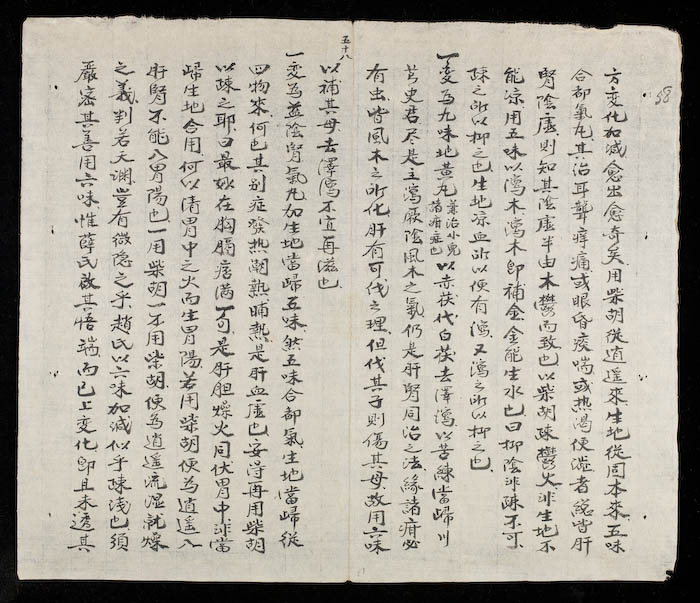 58
方变化加減愈出愈奇矣用柴胡從逍遥來生地從固本來五味
合都氣丸其治耳聾痒痛或眼昏痰喘或热渴便澁者緫皆肝
腎陰虚則知其陰虚半由木鬱而致也以柴胡疎鬱火非生地不
能凉用五味以瀉木瀉木即補金金能生水也曰抑陰非疎不可
疎之所以抑之也生地凉血所以便有瀉又瀉之所以抑之也
一变为九味地黄丸兼治小兒諸疳症也以赤茯代白茯去澤瀉以苦練當歸川
芎史君尽是主瀉厥陰風木之氣仍是肝腎同治之法緣諸疳必
有虫皆風木之所化肝有可伐之理但伐其子則傷其母故用六味
五十八
以補其母去澤瀉不宜再滋也
一变為益陰腎氣丸加生地當歸五味然五味合都氣生地當歸從
四物來何也其别症發热潮熱晡熱是肝血虚也安得再用柴胡
以疎之耶曰最妙在胸膈痞满一可是肝胆燥火同伏胃中非當
歸生地合用何以清胃中之火而生胃陽若用柴胡便为逍遥入
肝腎不能入胃陽也一用柴胡一不用柴胡便为逍遥流湿就燥
之義判若天渊豈有微隐之乎趙氏以六味加減似乎疎浅也須
嚴密其善用六味惟薛氏啟其悟端而已上变化即且未透其